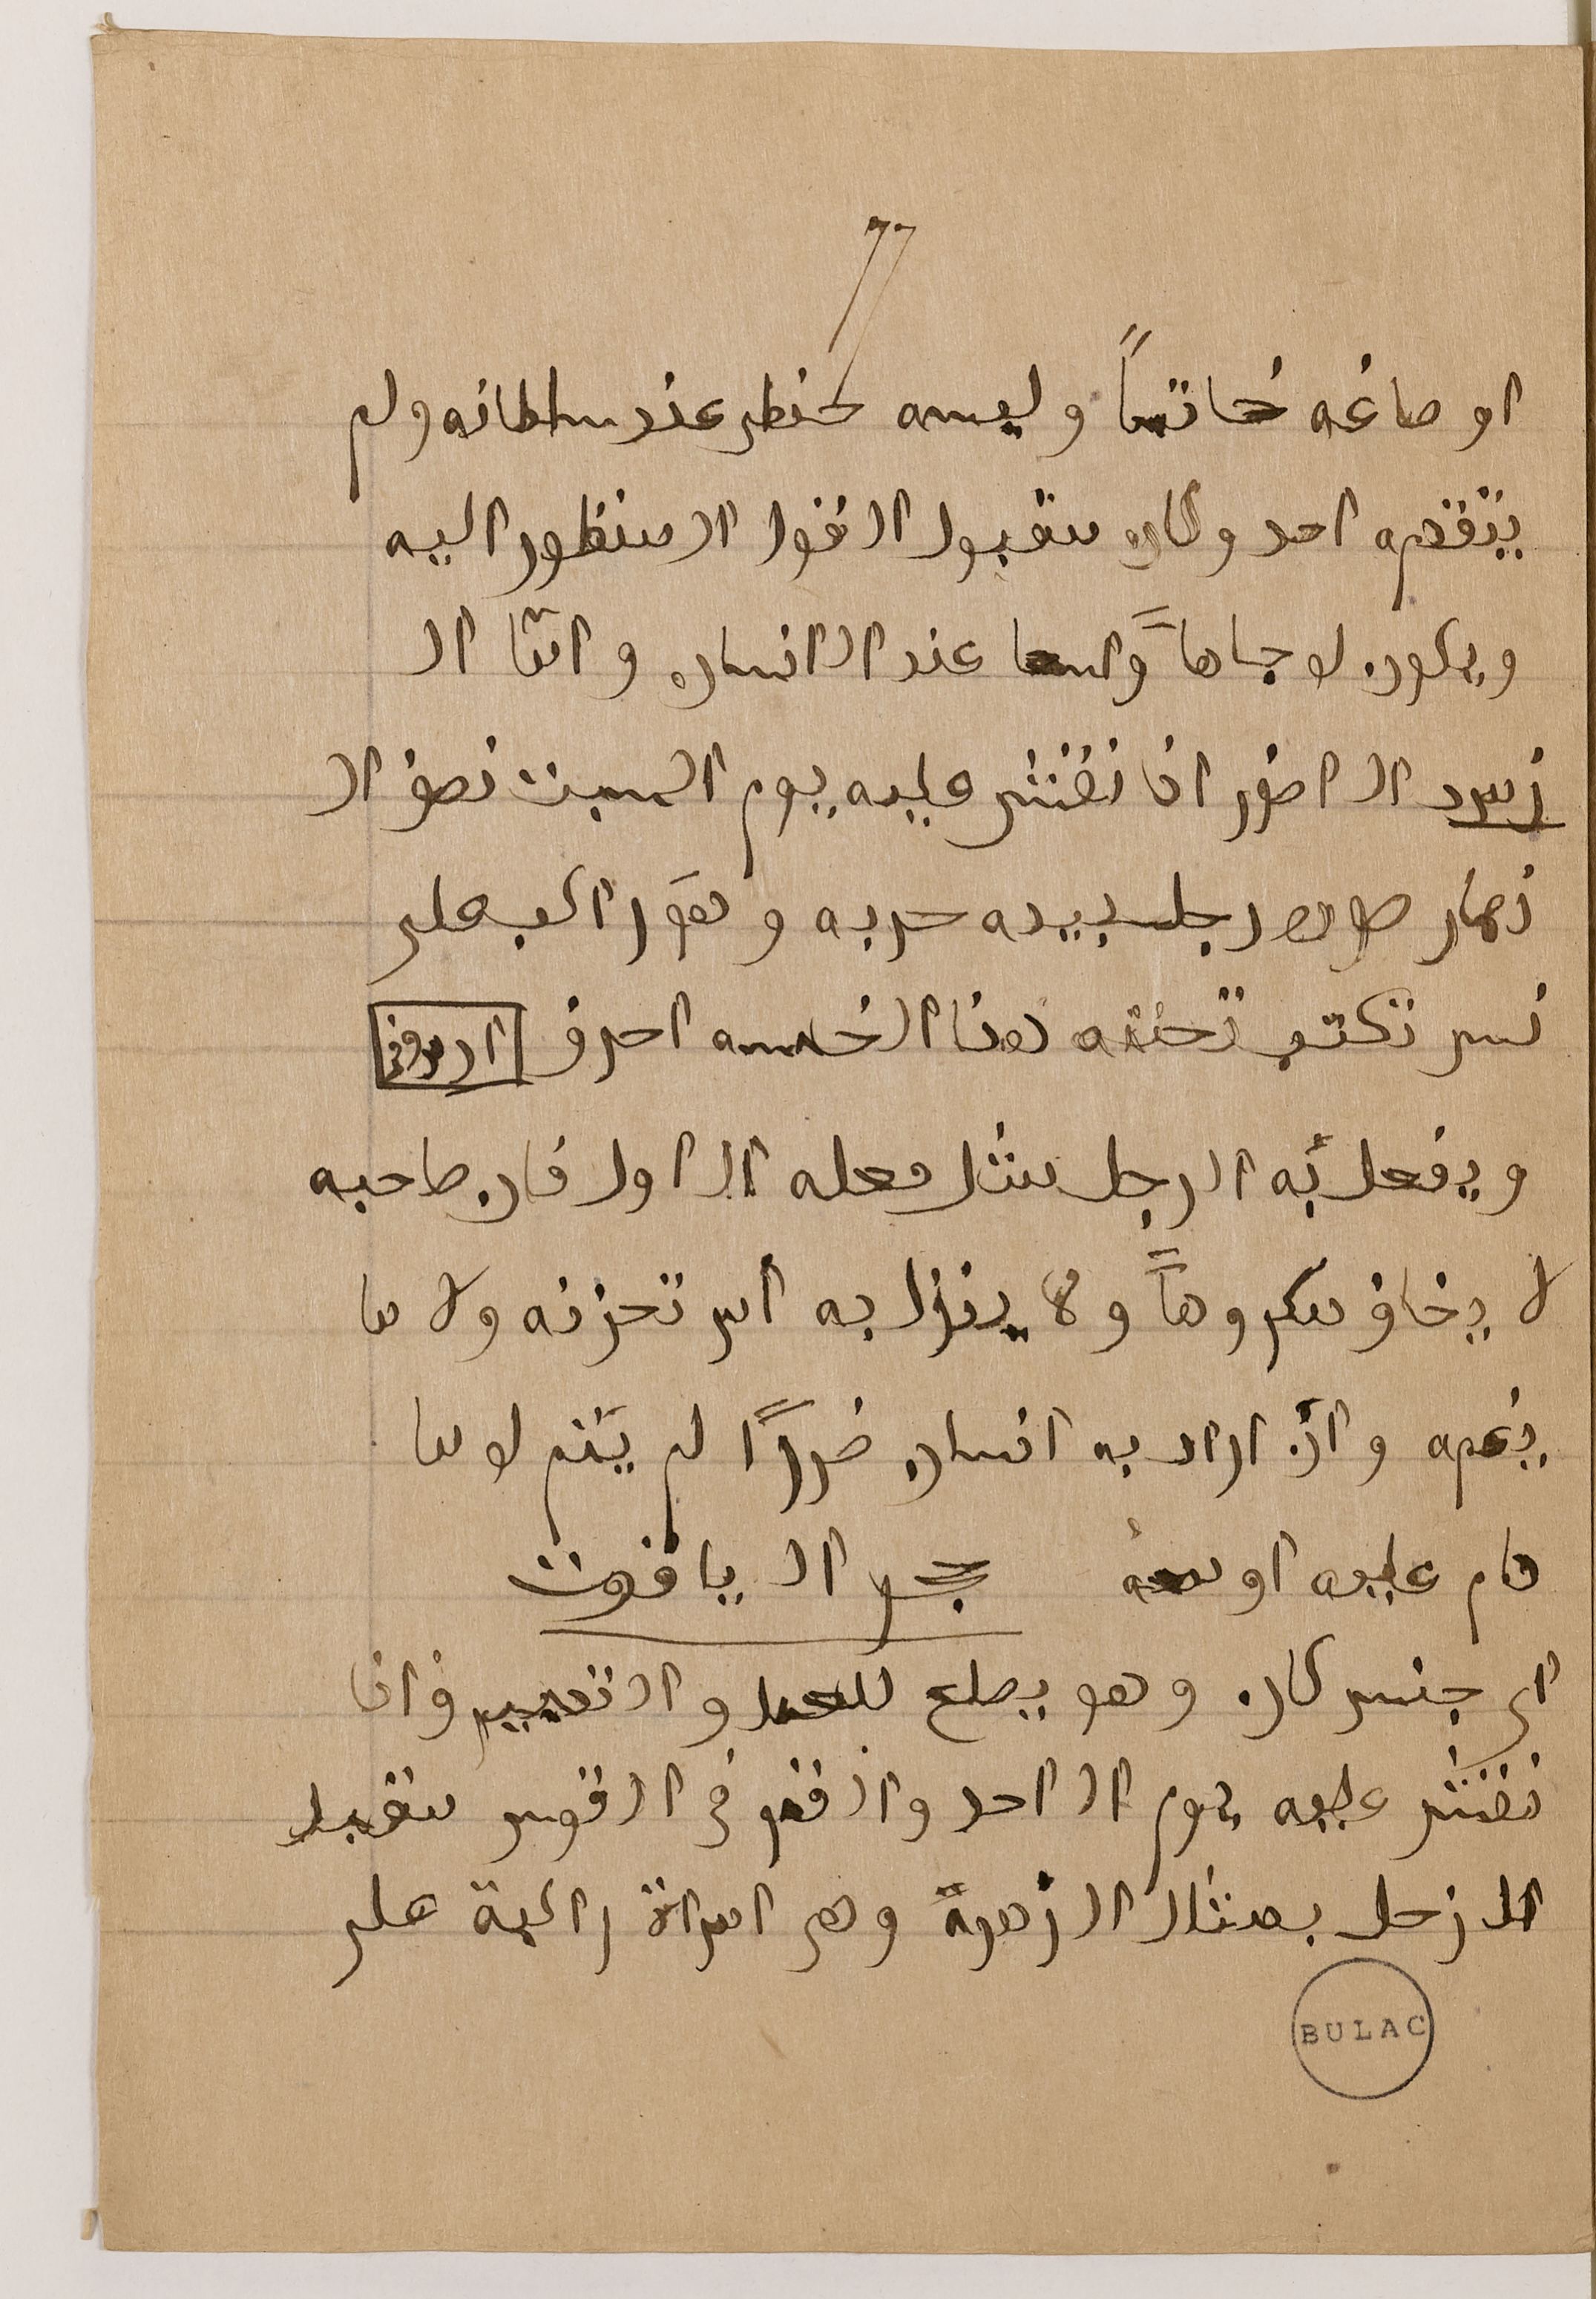 77
او صاغه خاتماً ولبسه حضى عند سلطانه ولم
يتقدمه احد وكان مقبول القول المنظور اليه
ويكون له جاهاً واسعا عند الانسان واما ال
زبرد الاخضر اذا نقش عليه يوم السبت نصف ال
نهار صورة رجل بيده حربه وهو راكب على
نسر تكتب تحته هذا الخمسه احرف
ويفعل به الرجل مثل فعله الاول فان صاحبه
لا يخاف مكروهاً ولا ينزل به امر تحزنه ولا ما
يغمه وان اراد به انسان ضرراً لم يتم له ما
قام عليه او حجر الياقوت
اى جنس كان وهو يصلح للعمل و فاذا
نقش عليه يوم الاحد والقمر فى القوس مقبل
ال زحل بمثال الزهرة وهى امراة راكبة على
BULAC